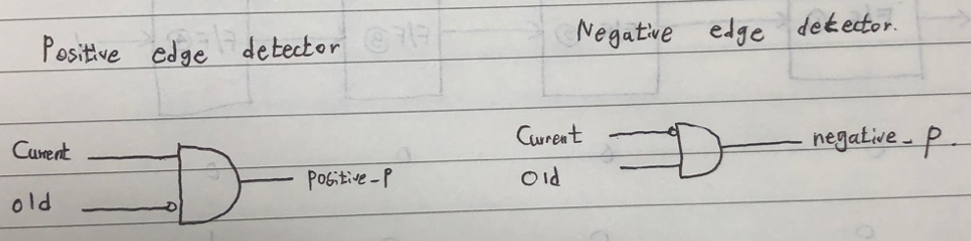 Positive edge detector
Negative edge detector.
Current
old
Positive_P
Current
Old
negative_P.